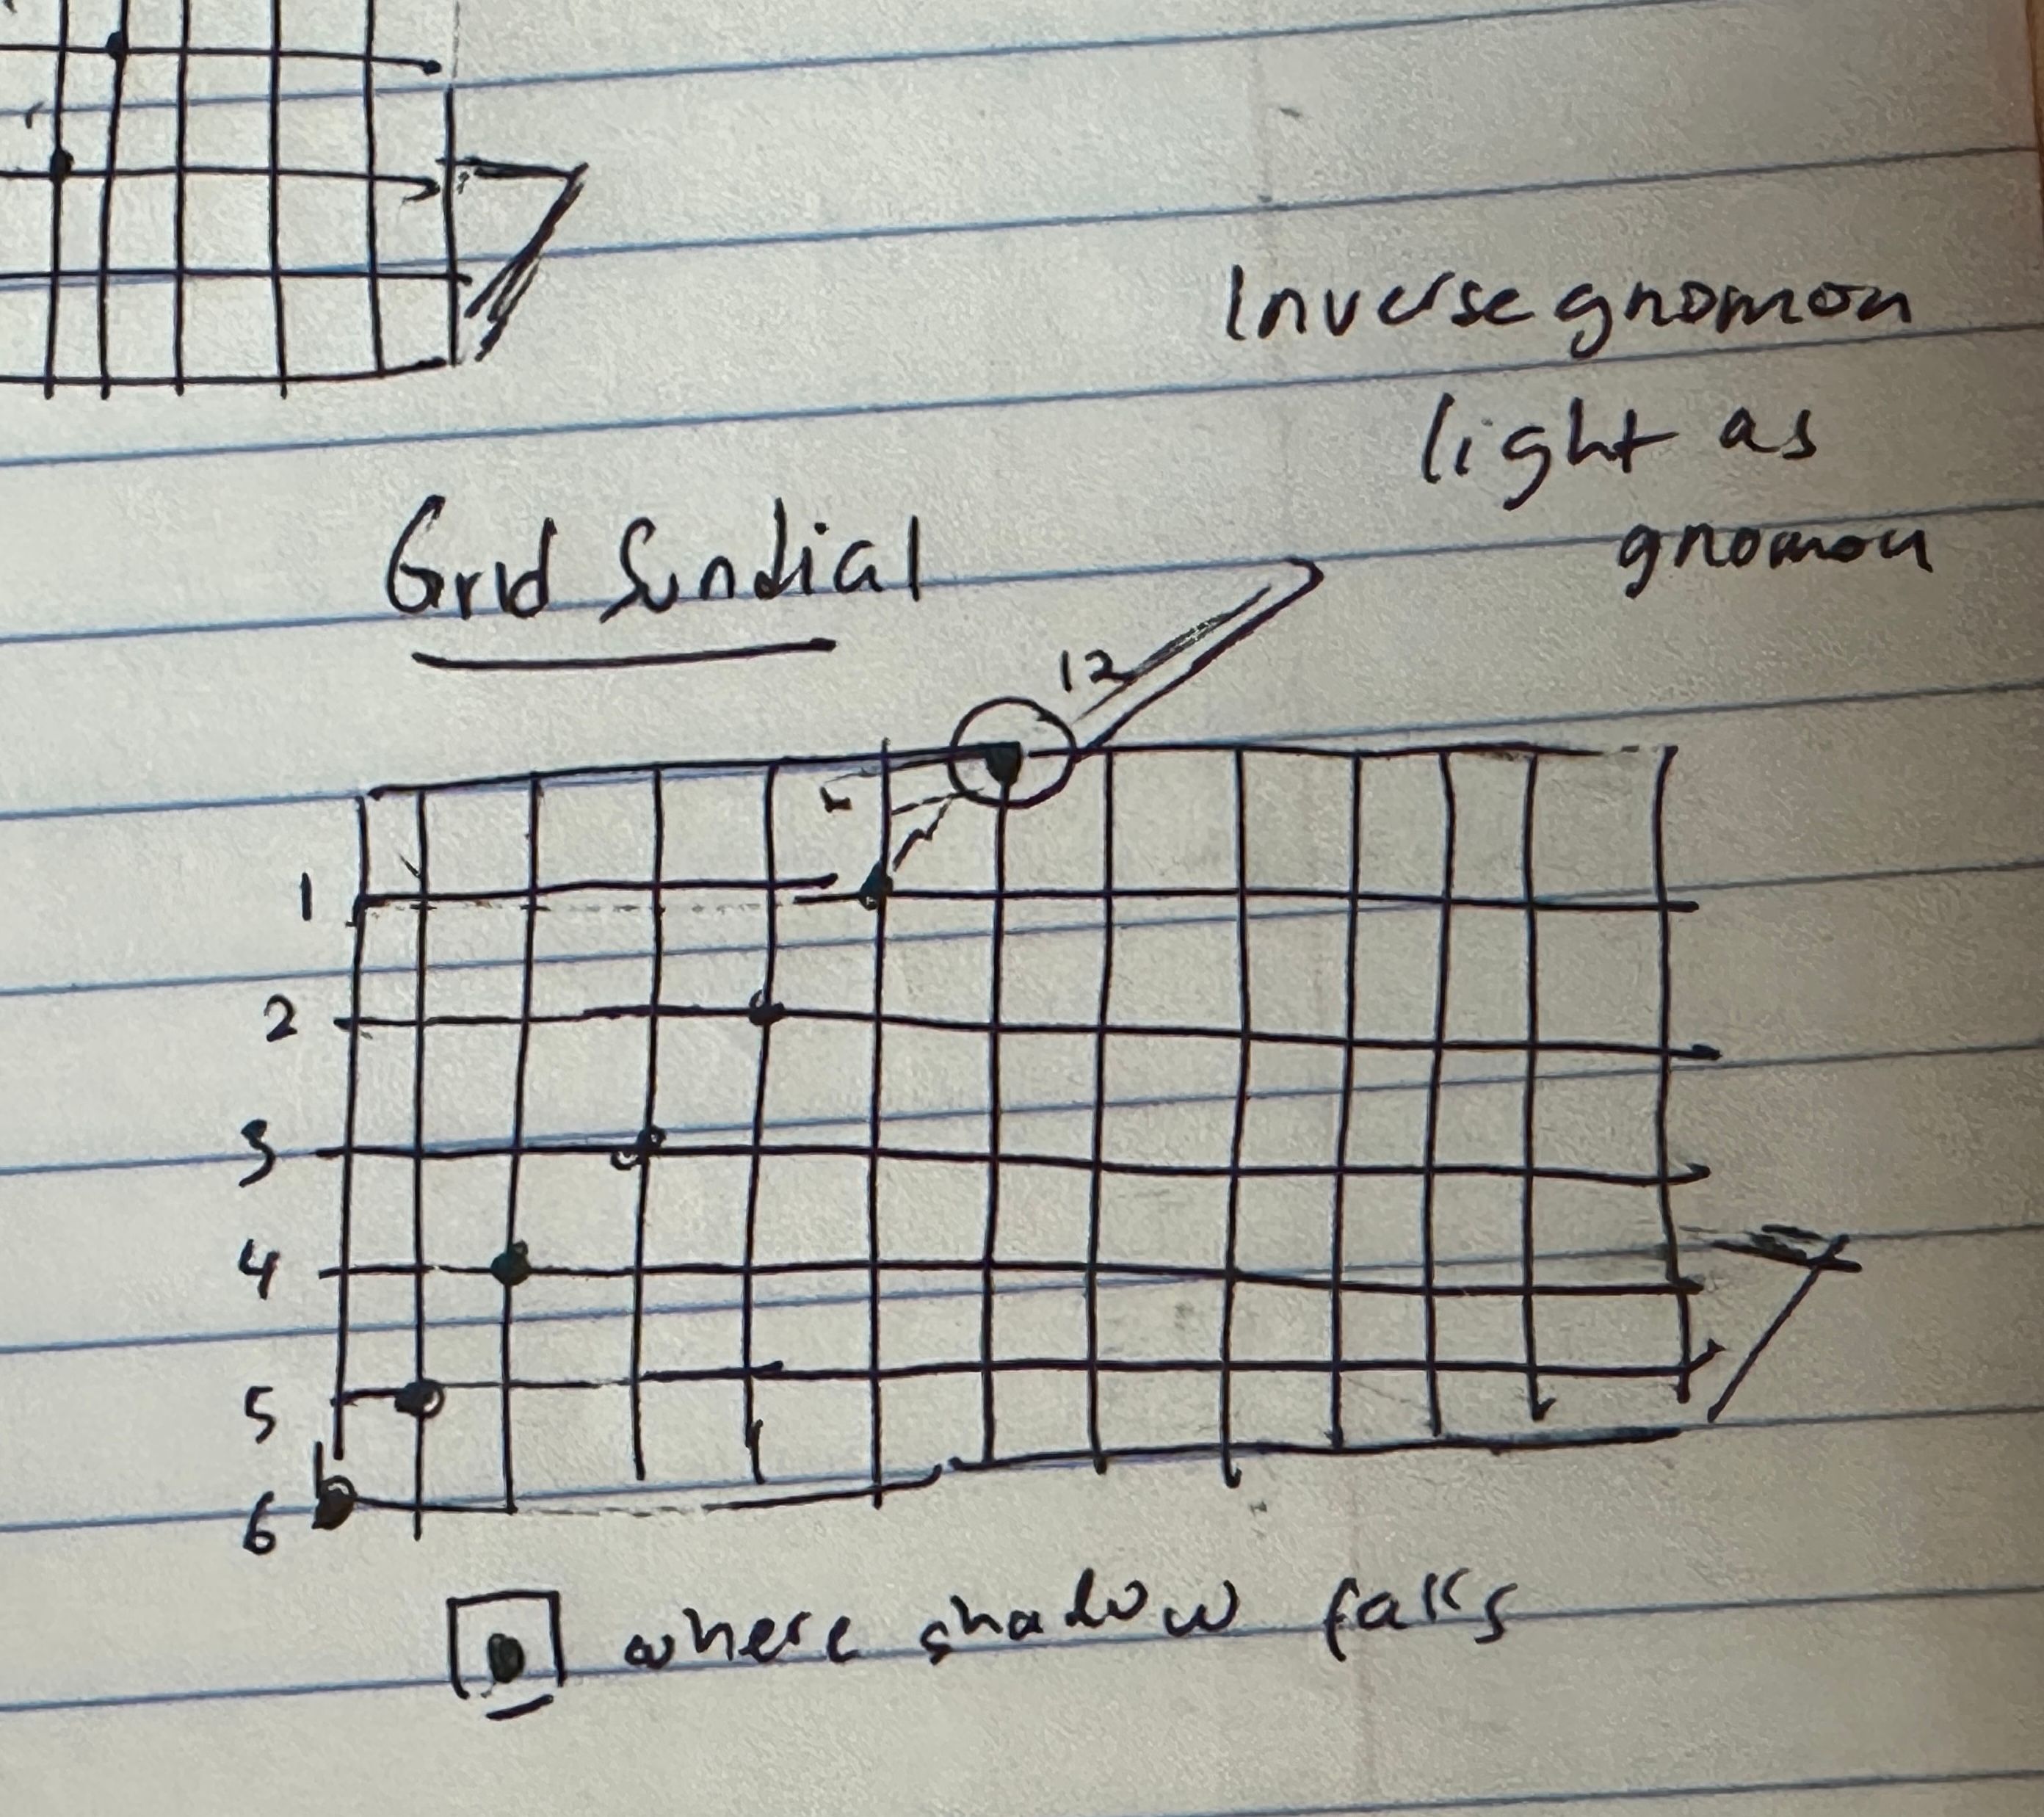 Inverse gnomon
light as
gnomon
Grid Sundial
12
1
2
3
4
5
6
where shadow falls